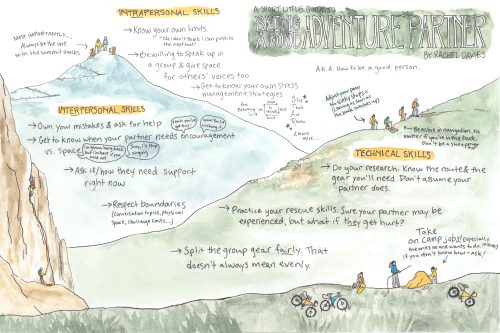 A SHORT LITTLE GUIDE TO
BEING A GOOD ADVENTURE PARTNER
BY: RACHEL DAVIES
A.K.A. How to be a good person.
INTRAPERSONAL SKILLS
→ Know your own limits.
"No, I don't think I can push to
the next hut"
→ Be willing to speak up in
a group & give space
for others' voices too
→ Get to know your own stress
management strategies
MOST IMPORTANTLY...
Always be the one
with the summit snacks
INTERPERSONAL SKILLS
→ Own your mistakes & ask for help
→ Get to know when your partner needs encouragement
vs. Space
→ Ask if/how they need support
right now
→ Respect boundaries
(Conversation topics, physical
space, challenge limits...)
Adjust your pace
No leaky ships
Be active in navigation, no
matter if you're in the back.
Don't be a sheep
TECHNICAL SKILLS
→ Do your research. Know the route & the
gear you'll need. Don't assume your
partner does.
→ Practice your rescue skills. Sure your partner may be
experienced, but what if they get hurt?
→ Split the group gear fairly. That
doesn't always mean evenly.
Take
on camp jobs! Especially
the ones no one wants to do. Others
if you don't know how - ask!